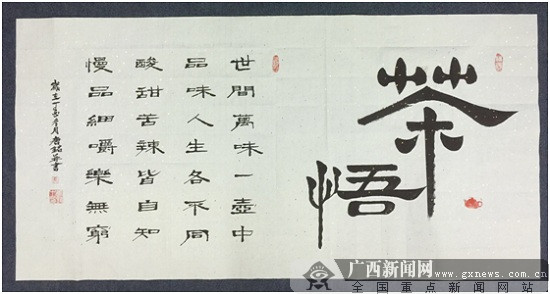 茶悟
世間萬味一壺中
品味人生各不同
酸甜苦辣皆自知
慢品細嚼樂無窮
广西新闻网
www.gxnews.com.cn
全国重点新闻网站